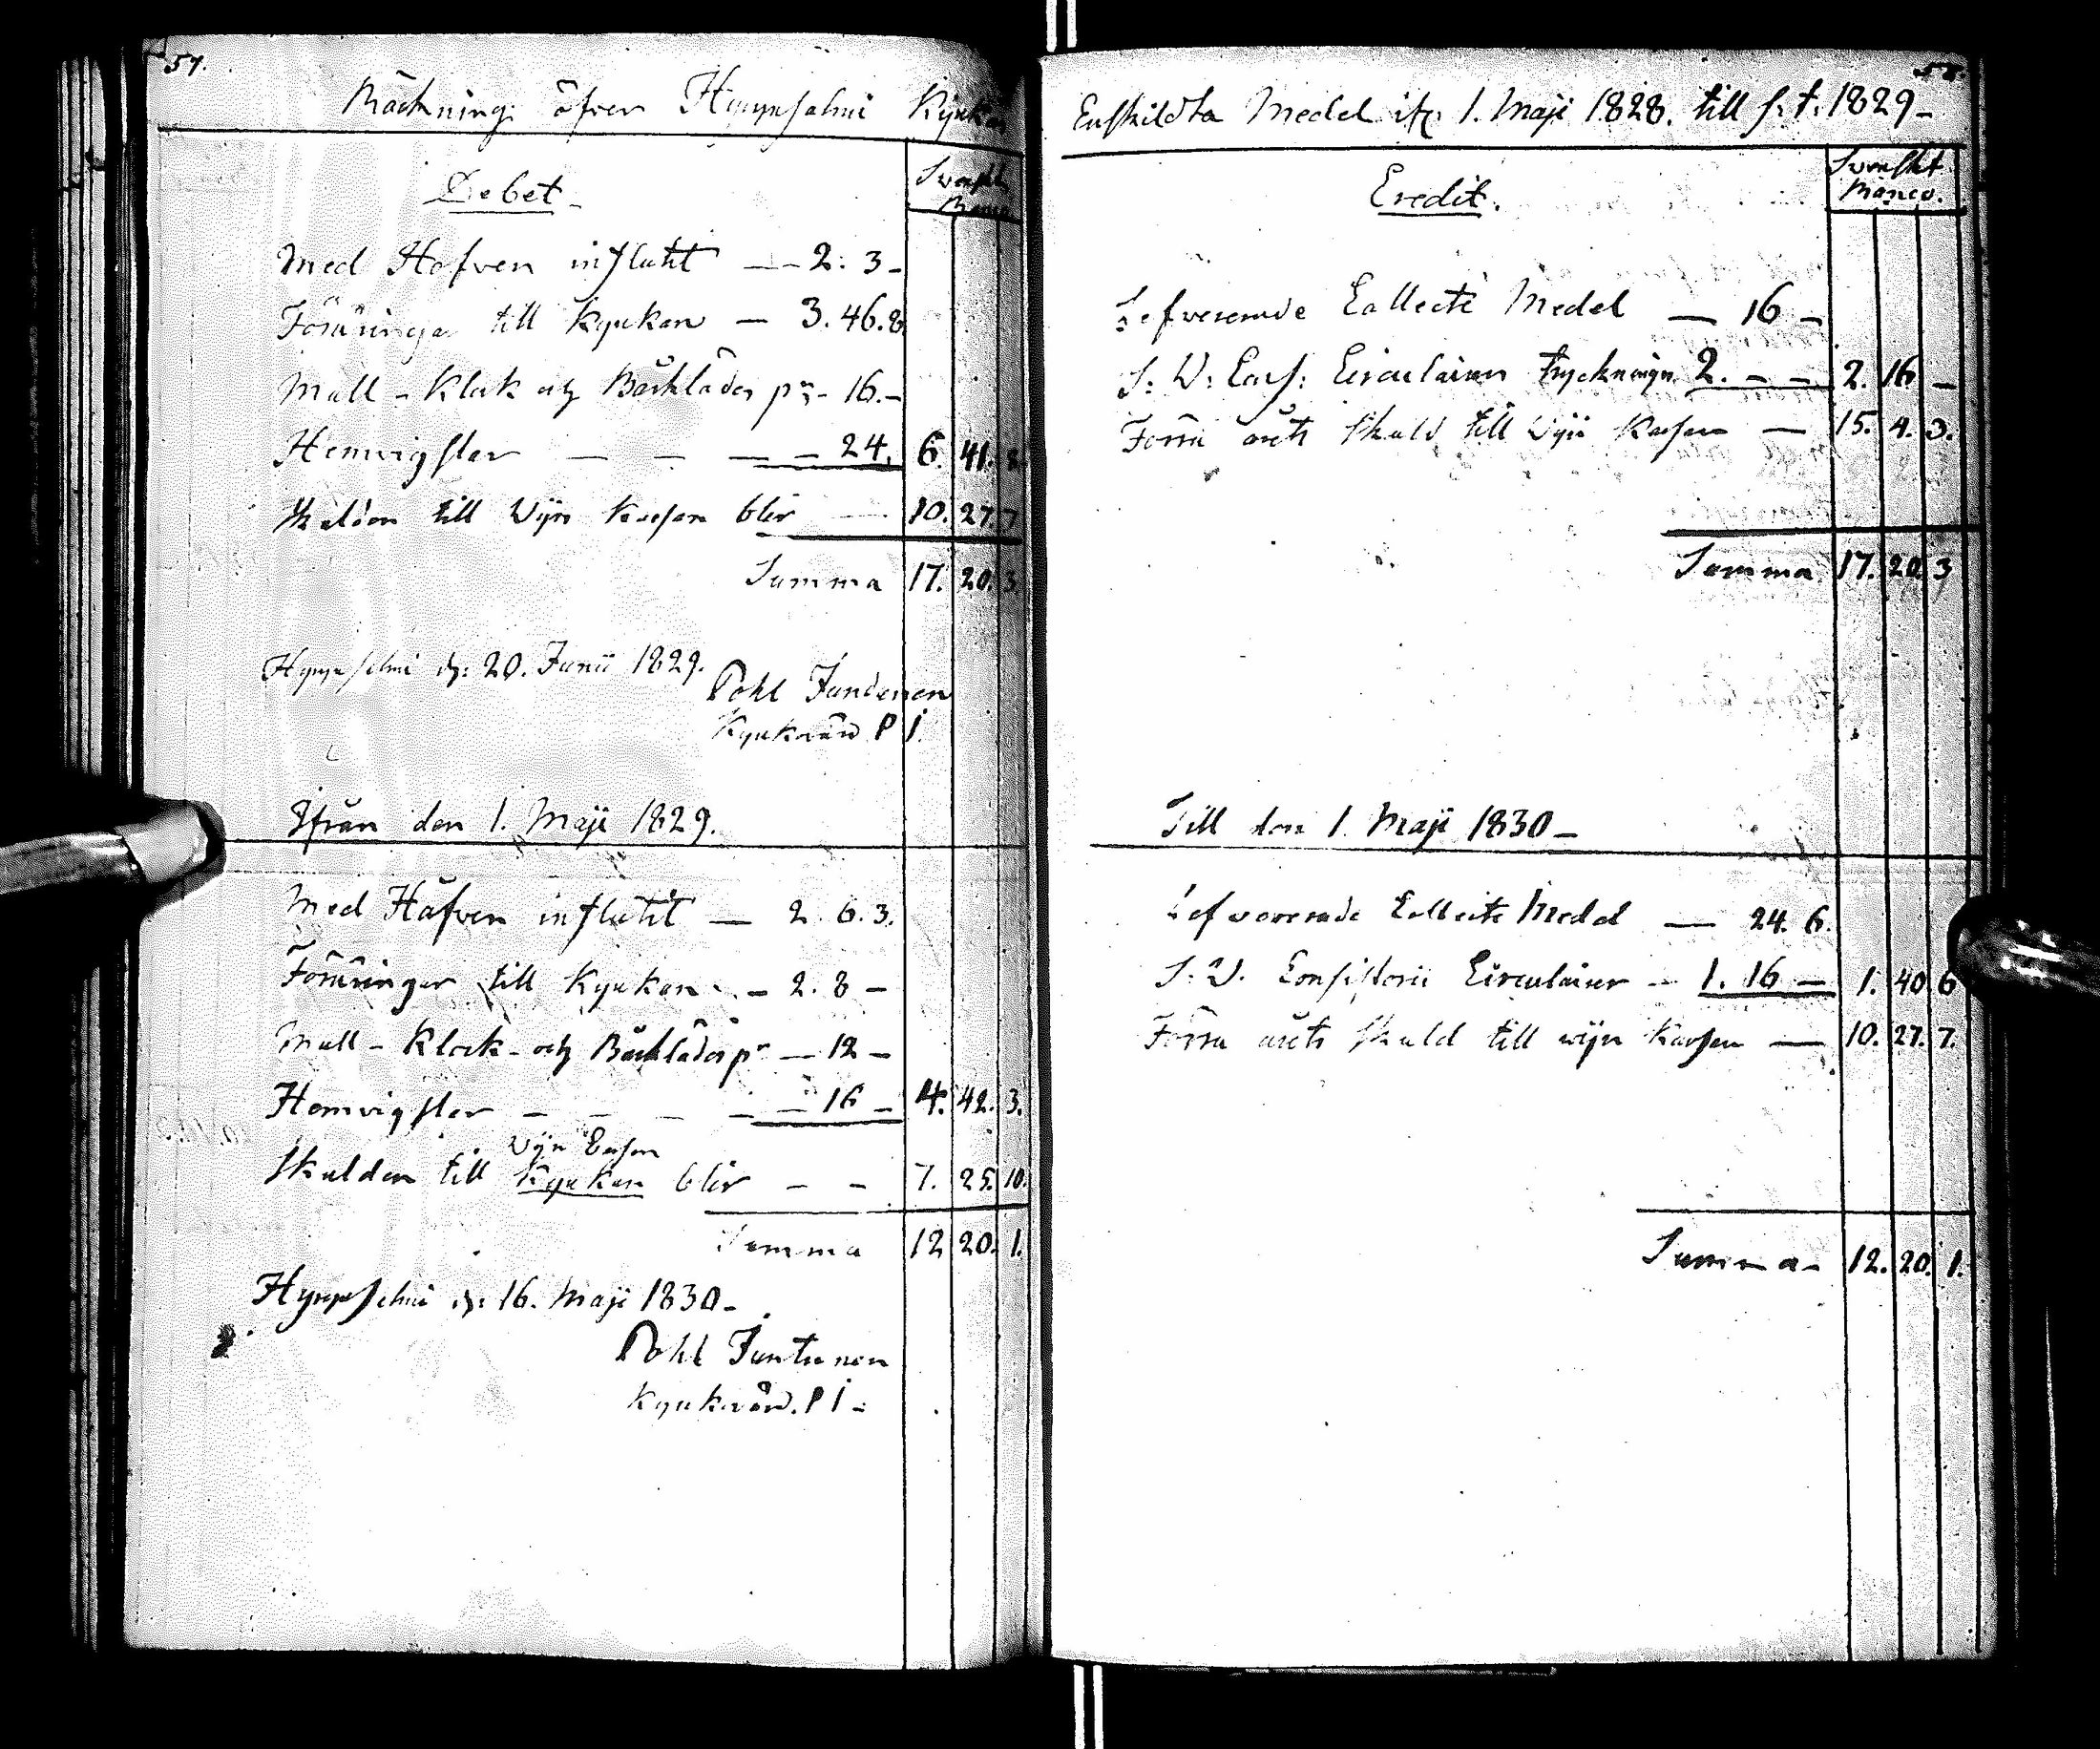 57.
Räckning öfver Hyrynsalmi Kyrkas
Debet.
Svenskt
Banco
Med Hofven influtit — 2. 3 -
Foräringar till Kyrkan — 3. 46. 8
Mull - Klock och Bårkläder pr - 16. -
Hemvigslar — — — 24. 6. 41. 8
Skulden till Wijn Kassan blir — 10. 27. 7
Summa 17. 20. 3
Hyrynsalmi d: 20. Junii 1829.
Pohl Jundunen
Kyrkvärd P i
Ifrån den 1. Maji 1829.
Med Håfven influtit — 2. 6. 3.
Foräringar till Kyrkan - - 2. 8 -
Mull - Klock - och Bårkläder pr — 12 -
Hemvigslar — — — — 16 - 4. 42. 3.
Wijn Cassan
Skulden till Kyrkan blir - - 7. 25. 10.
Summa 12 20. 1.
Hyrynsalmi d: 16. Maji 1830 -
Pohl Juntunen
Kyrkvärd. P i -
58.
Enskildta Medel ifr. 1. Maji 1828. till s. t. 1829 -
Credit.
Svenskt
Banco.
Lefvererade Collecte Medel — 16 -
S: V: Cons: Circulairen tryckningn 2. - - 2. 16 -
Förra årets skuld till Wijn Kassan — 15. 4. 3.
Summa 17. 20. 3
Till den 1. Maji 1830 -
Lefvererade Collecte Medel — 24. 6.
S: V. Consistorii Circulairer - 1. 16 - 1. 40. 6
Förra årets skuld till wijn Kassan — 10. 27. 7.
Summa - 12. 20. 1.